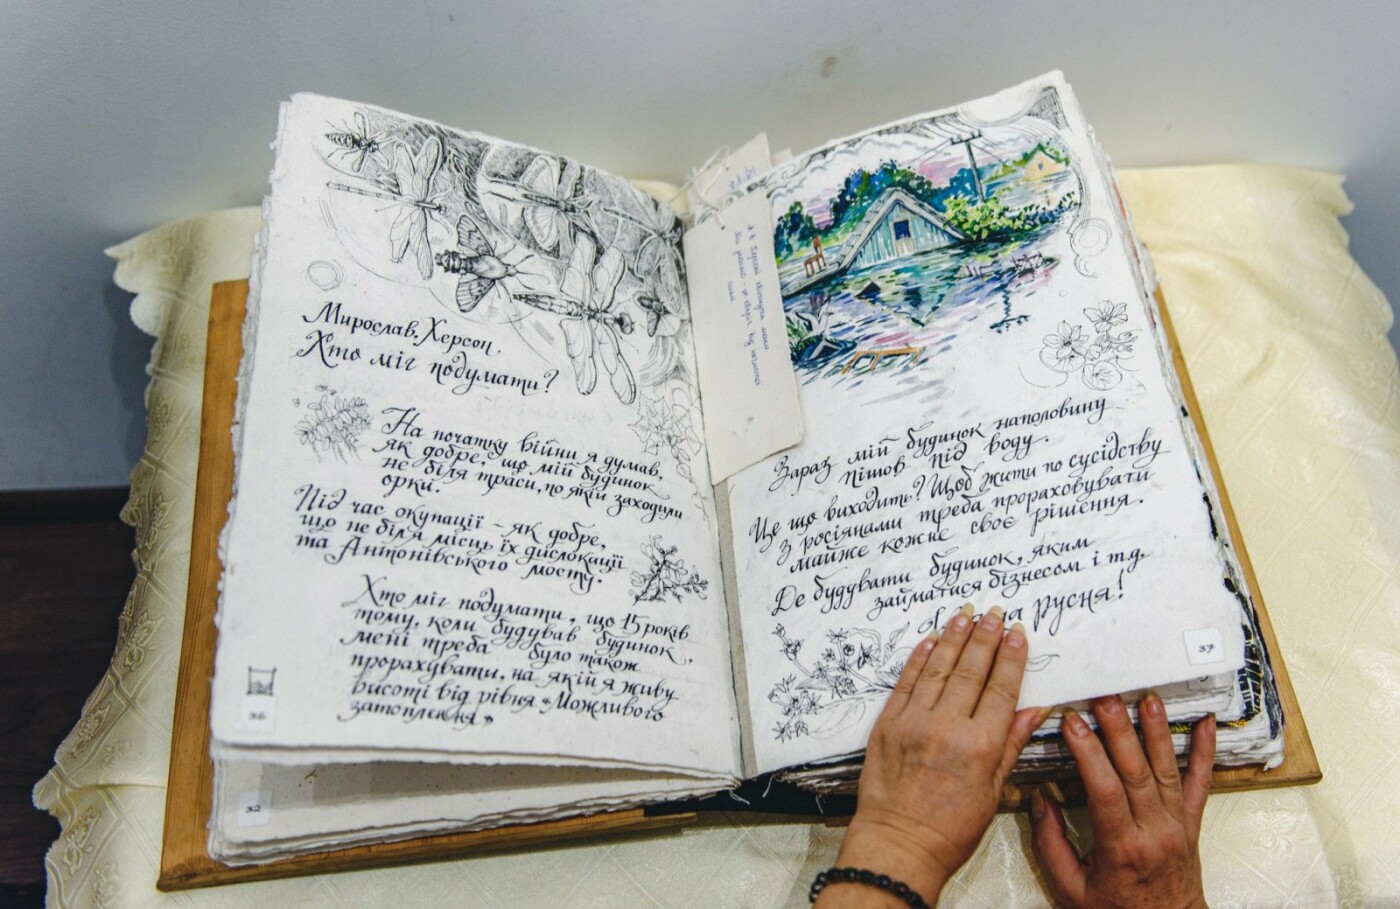 Мирослав. Херсон.
Хто міг подумати?
На початку війни я думав,
як добре, що мій будинок
не біля траси, по якій заходили
орки.
Під час окупації – як добре,
що не біля місць їх дислокації
та Антонівського мосту.
Хто міг подумати, що 15 років
тому, коли будував будинок,
мені треба було також
прорахувати, на якій я живу
висоті від рівня «Можливого
затоплення»
36
32
Зараз мій будинок наполовину
пішов під воду.
Це що виходить? Щоб жити по сусідству
з росіянами треба прораховувати
майже кожне своє рішення.
Де будувати будинок, яким
займатися бізнесом і т.д.
русня!
37